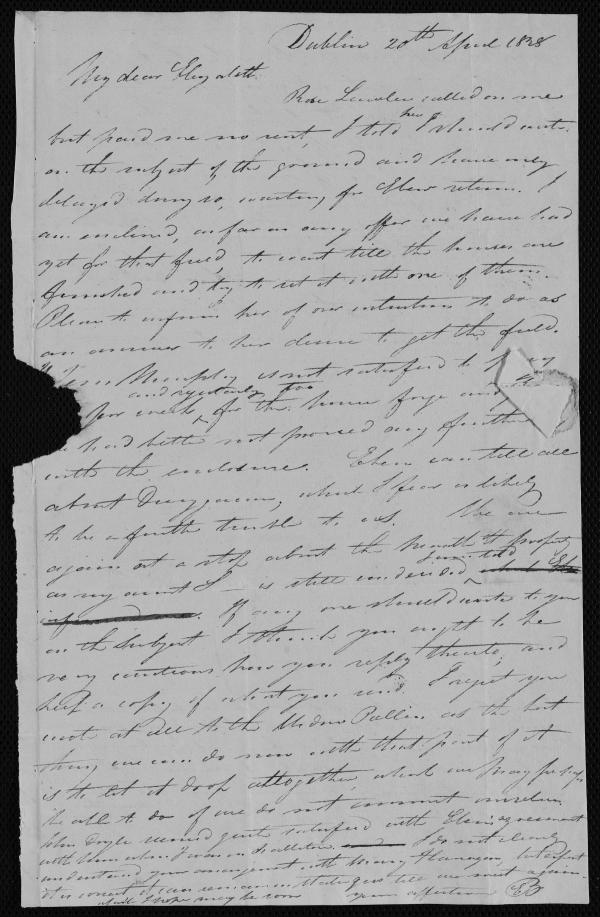 Dublin 20th April 1828
My dear Elizabeth
Rose Lawler called on me
but paid me no rent, I told her I should write
on the subject of the ground and have only
delayed doing so, waiting for Eben return. I
am inclined, as far as any offer we have had
yet for that field, to wait till the houses are
finished and try to set it with one of them.
Please to inform her of our intention to do as
an answer to her desire to get the field.
Murphy is not satisfied to pay
and regularly too
per week for the house forge and
he had better not proceed any further
with the enclosure. Eben can tell all
about which I fear is likely
to be a further trouble to us. We are
again at a stop about the property
I am told
as my aunt is still undecided
. If any one should write to you
on the subject I think you ought to be
very cautious how you reply thereto, and
keep a copy of what you write. I regret you
wrote at all to the Widow Pullin as the best
thing we can do now with that part of it
is to let it drop altogether, which we may perhaps
be able to do if we do not commit ourselves
John Doyle seemed quite satisfied with Eben's agreement
with him when I was in . I do not clearly
understand your arrangement with Mary Flanagan, but if
it is correct it can remain till we meet again
which I hope may be soon your affection EB